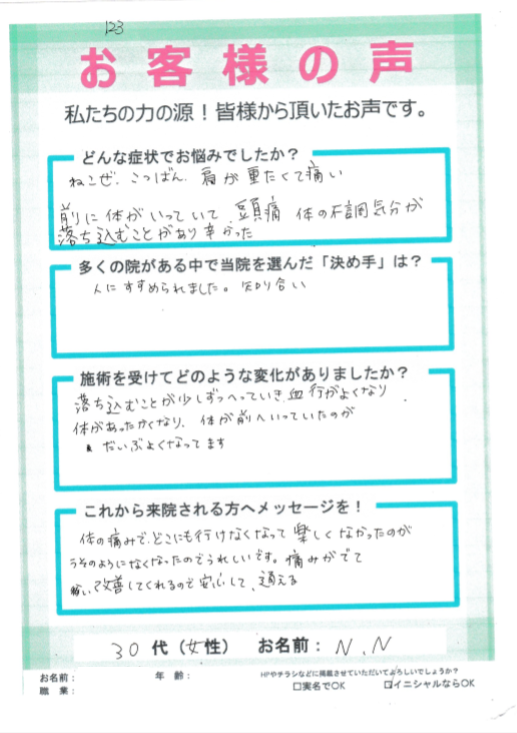 123
お客様の声
私たちの力の源！皆様から頂いたお声です。
どんな症状でお悩みでしたか？
ねこぜ、こつばん、肩が重たくて痛い
前に体がいっていて、頭痛 体の不調気分が
落ち込むことがあり辛かった
多くの院がある中で当院を選んだ「決め手」は？
人にすすめられました。知り合い
施術を受けてどのような変化がありましたか？
落ち込むことが少しずつへっていき血行がよくなり
体があったかくなり、体が前へいっていたのが
だいぶよくなってます
これから来院される方へメッセージを！
体の痛みで、どこにも行けなくなって楽しくなかったのが
うそのようになくなったのでうれしいです。痛みがでて
改善してくれるので安心して、通える
30代（女性） お名前：N.N
お名前： 年齢： HPやチラシなどに掲載させていただいてよろしいでしょうか？
職業： □実名でOK ☑イニシャルならOK